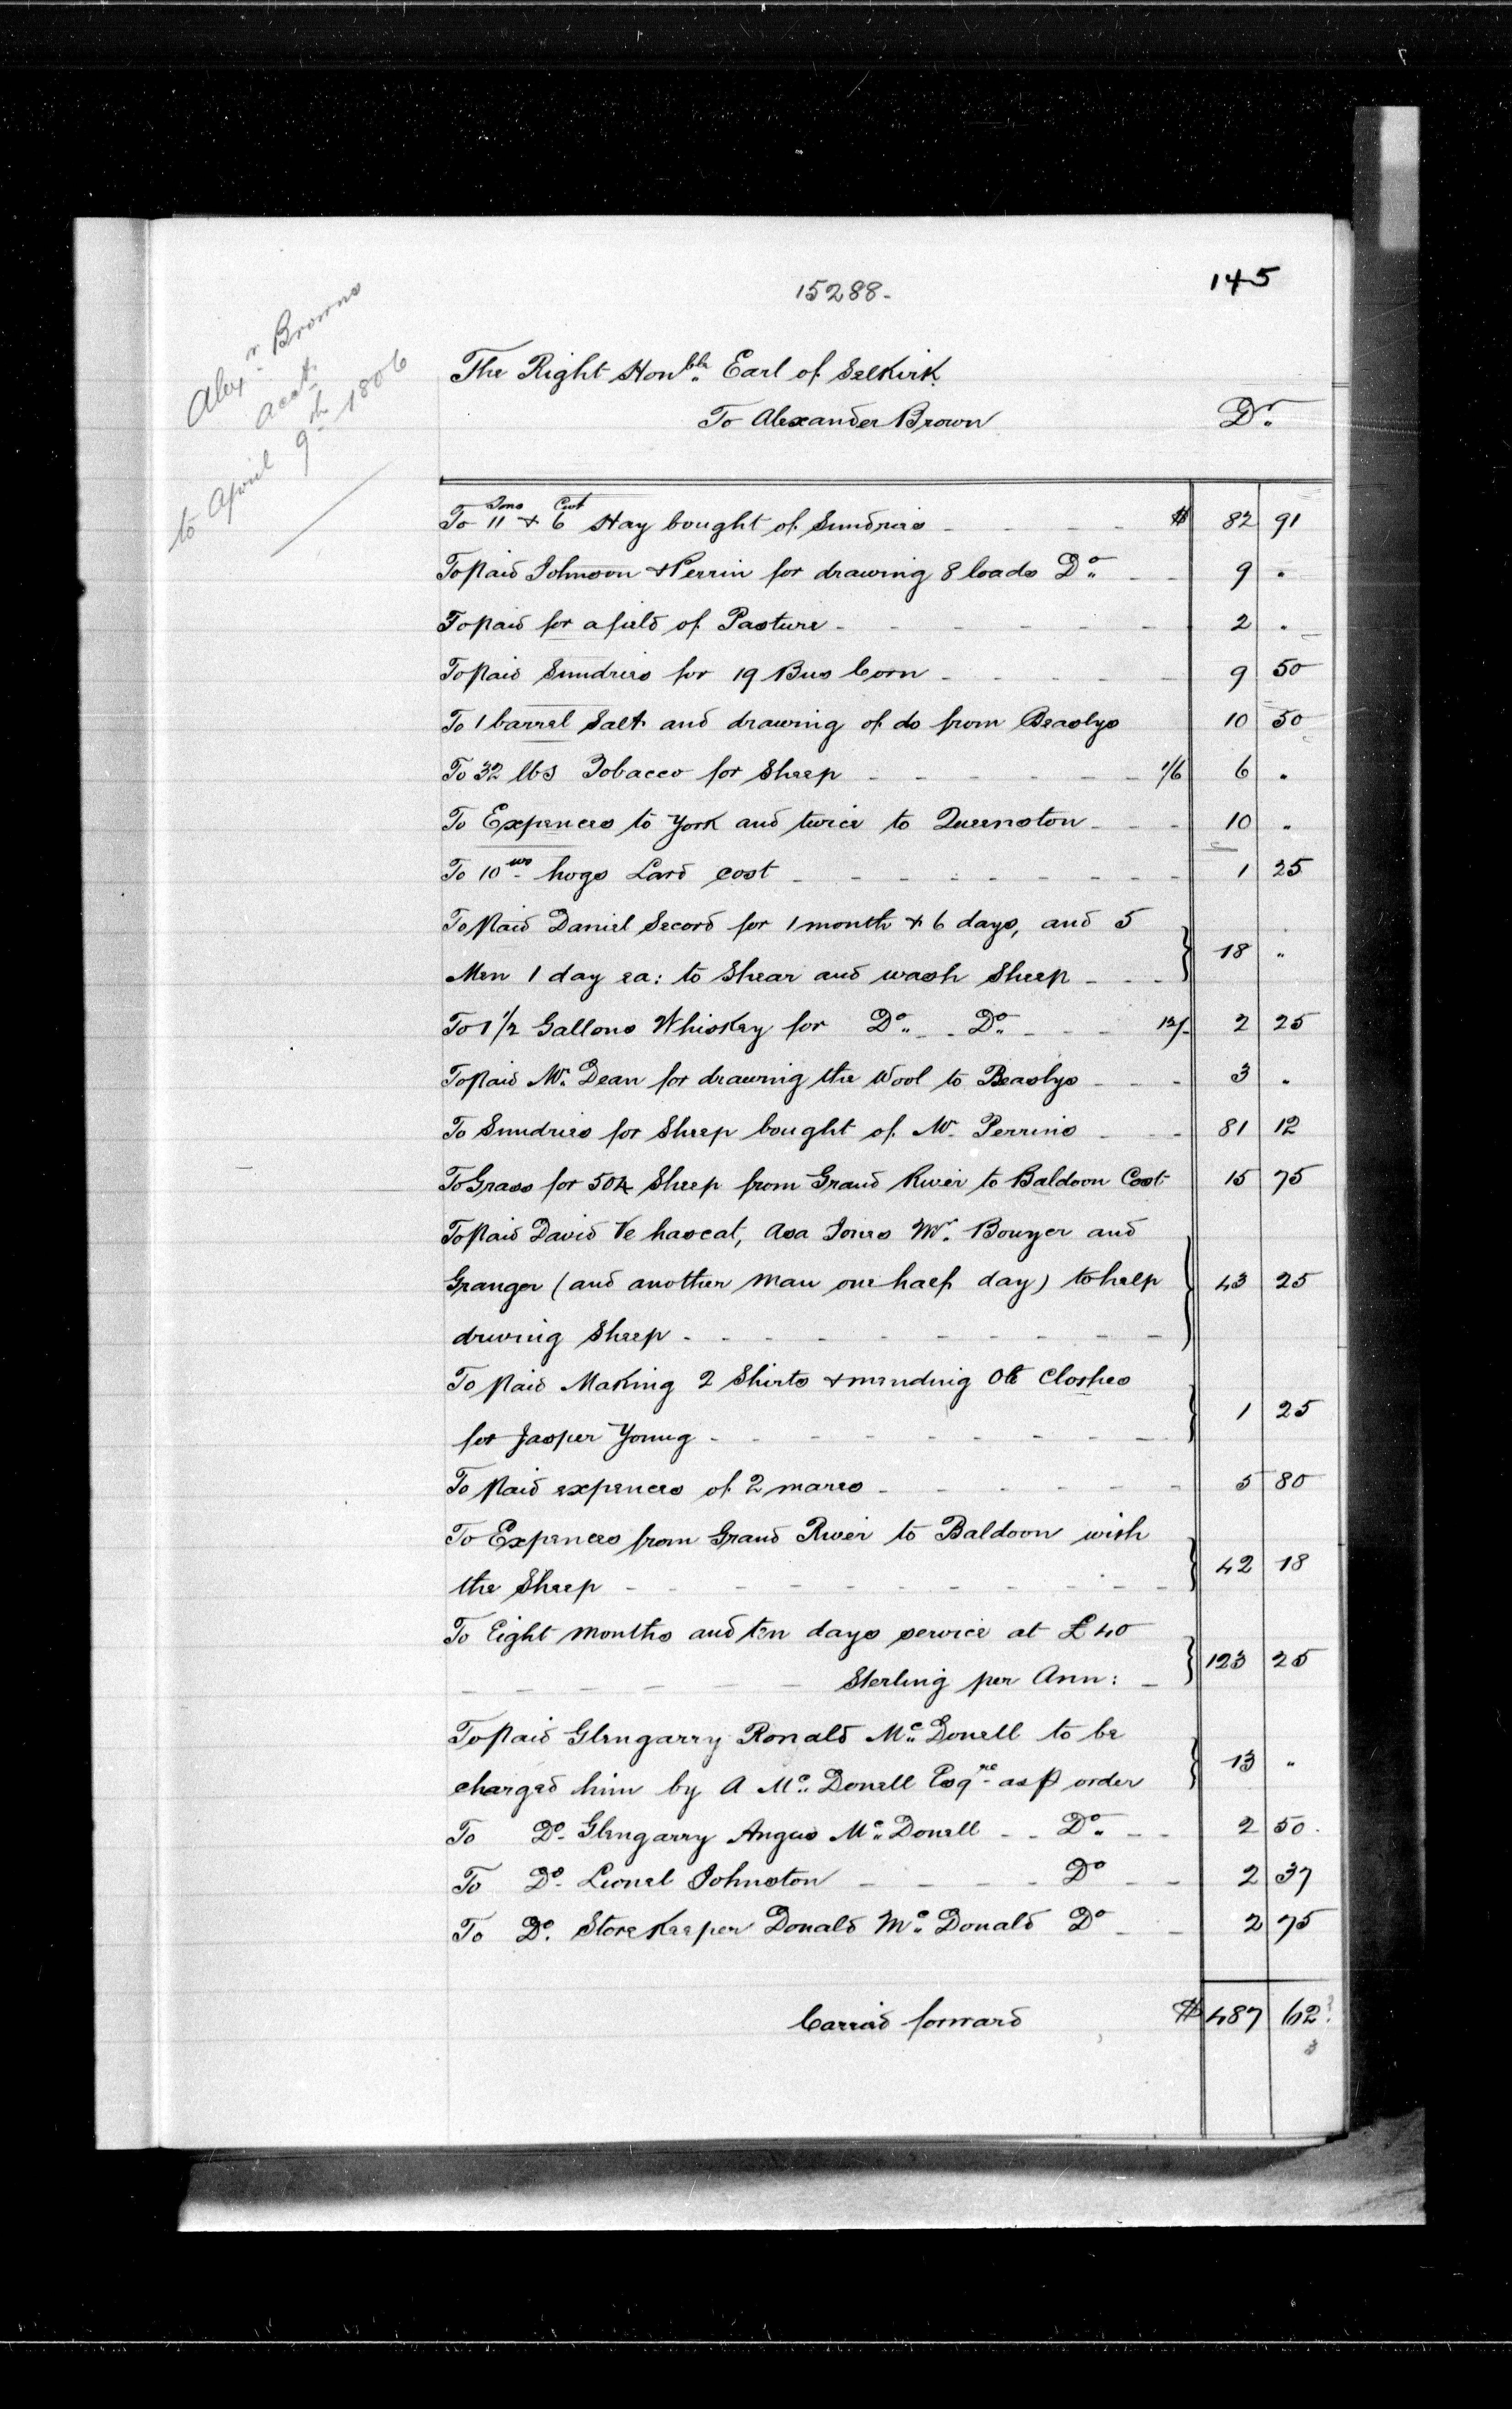 15288.
145
Alexr. Browns
acct.
to April 9th 1806
The Right Honble. Earl of Selkirk
To Alexander Brown Dr.
To 11 Tons & 6 Cwt Hay bought of Sundries $ 82 91
To paid Johnson & Perrin for drawing 8 loads Do. 9 "
To paid for a field of Pasture 2 "
To paid Sundries for 19 Bus Corn 9 50
To 1 barrel Salt and drawing of do from Beaslys 10 50
To 32 lbs Tobacco for Sheep 1/6 6 "
To Expences to York and twice to Queenston 10 "
To 10 hogs Lard cost 1 25
To paid Daniel Secord for 1 month & 6 days, and 5
Men 1 day ea: to Shear and wash Sheep 18 "
To 1 1/2 Gallons Whiskey for Do. Do. 12/- 2 25
To paid Mr. Dean for drawing the Wool to Beaslys 3 "
To Sundries for Sheep bought of Mr. Perrins 81 12
To Grass for 504 Sheep from Grand River to Baldoon Cost 15 75
To paid David Ve hascat, Asa Jones Mr. Bouyer and
Granger (and another man one half day) to help 43 25
driving Sheep
To paid Making 2 Shirts & mending Clothes
for Jasper Young 1 25
To paid expences of 2 mares 5 80
To Expences from Grand River to Baldoon with
the Sheep 42 18
To Eight months and ten days service at £40
Sterling per Ann: 123 25
To paid Glengarry Ronald Mc.Donell to be
charged him by A Mc. Donell Esqre as p order 13 "
To Do. Glengarry Angus Mc.Donell Do. 2 50
To Do. Lionel Johnston Do 2 37
To Do. Storekeeper Donald Mc. Donald Do 2 75
Carried forward $ 487 62?
3